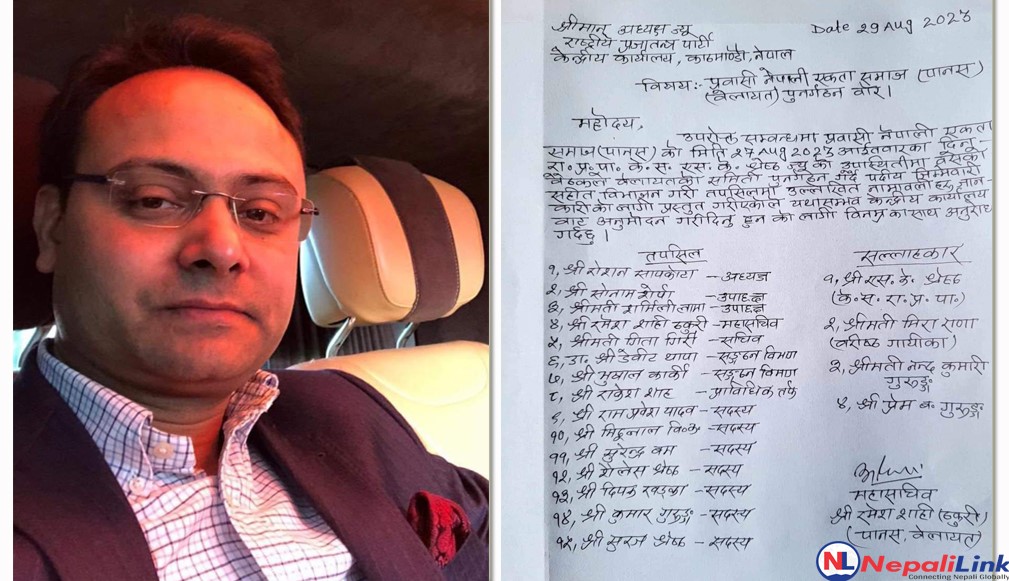 श्रीमान् अध्यक्ष ज्यू
Date 29 Aug 2023
राष्ट्रीय प्रजातन्त्र पार्टी
केन्द्रीय कार्यालय, काठमाण्डौ, नेपाल
विषय:- प्रवासी नेपाली एकता समाज (पानस)
(बेलायत) पुनर्गठन बारे।
महोदय,
उपरोक्त सम्बन्धमा प्रवासी नेपाली एकता
समाज (पानस) को मिति 27 Aug 2023 आईतवारका दिन
रा.प्र.पा. के.स. एस.के. श्रेष्ठ ज्यू को उपस्थितीमा बसेको
बैठकले बेलायतको समिती पुनर्गठन गर्दै पदीय जिम्मेवारी
सहित विभाजन गरी तपसिलमा उल्लेखित नामावली जान-
कारीको लागी प्रस्तुत गरीएकोले यथासंभव केन्द्रीय कार्यालय
बाट अनुमोदन गरीदिनु हुन को लागी विनम्रकासाथ अनुरोध
गर्दछु।
तपसिल
१, श्री रोशन सापकोटा - अध्यक्ष
२, श्री सोनाम शेर्पा - उपाध्यक्ष
३, श्रीमती शर्मिली लामा - उपाध्यक्ष
४, श्री रमेश शाही ठकुरी - महासचिव
५, श्रीमती गिता गिरी - सचिव
६, डा. श्री डेवीट थापा - सङ्गठन विभाग
७, श्री मुकुन्द कार्की - सङ्गठन विभाग
८, श्री राकेश शाह - प्राविधिक तर्फ
९, श्री राम प्रवेश यादव - सदस्य
१०, श्री मिठ्ठुलाल वि.क. - सदस्य
११, श्री सुरेन्द्र बम - सदस्य
१२, श्री शैलेस श्रेष्ठ - सदस्य
१३, श्री दिपक खड्का - सदस्य
१४, श्री कुमार गुरुङ्ग - सदस्य
१५, श्री सुरज श्रेष्ठ - सदस्य
सल्लाहकार
१, श्री एस. के. श्रेष्ठ
(के. स. रा. प्र. पा.)
२, श्रीमती मिरा राणा
(वरिष्ठ गायीका)
३, श्रीमती नन्द कुमारी
गुरुङ्ग
४, श्री प्रेम ब. गुरुङ्ग
महासचिव
श्री रमेश शाही (ठकुरी)
(पानस, बेलायत)
NL NepaliLink
Connecting Nepali Globally